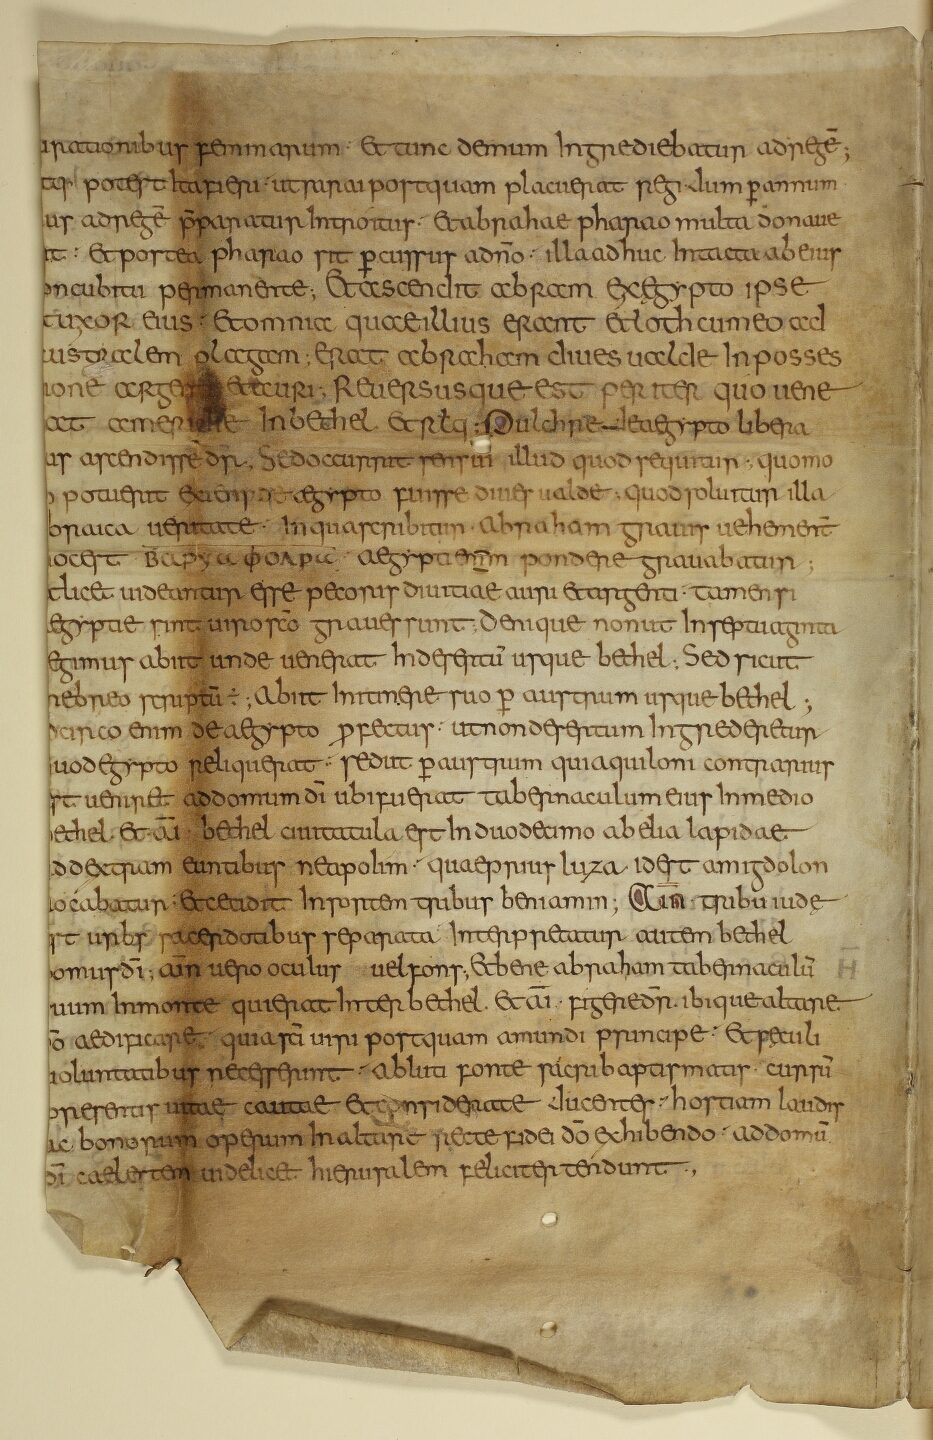 arationibus feminarum · Et tunc demum Ingrediebatur adregē;
potest Ita fieri · utsarai postquam placuerat regi dum ꝑ annum
us adregē p̄paratur Introitus · Et abrahae pharao multa donaue
it · Et postea pharao sit ꝑcussus adnō · illa adhuc Intacta ab eius
oncubitu permanente; Et ascendit abram exegypto ipse
et uxor eius · Et omnia quae illius erant Et loth cum eo ad
australem plagam; erat abraham diues ualde In posses
ione argenti et auri; Reuersusque est per iter quo uene
rat a meridie In bethel et rlq; Pulchre de aegypto libera
us ascendisse dr̄; Sed occurrit sensui illud quod sequitur; quomo
potuerit exiens de aegypto fuisse diues ualde; quod soluitur illa
braica ueritate · In qua scribitur · Abraham grauis uehement̄
βαρυς φορα · aegyptiorum pondere grauabatur;
licet uideantur esse pecoris diuitiae auri et argenti · tamen si
egyptiae sint uiro sc̄o graues sunt; Denique non ut In septuaginta
egimus abiit unde uenerat In desertū usque bethel; Sed sicut
hebreo scriptū ÷; Abiit Initinere suo ꝑ austrum usque bethel;
circo enim de aegypto ꝓfectus · ut non desertum Ingrederetur
uod egypto reliquerat · sed ut ꝑ austrum quia quiloni contrarius
st ueniret ad domum dī ubi fuerat tabernaculum eius In medio
bethel · Et · āi · bethel ciuitatula est In duodecimo ab elia lapidae
ad dextram euntibus neapolim · quae prius luza · idest amigdolon
uocabatur · Et cecidit In sorten tribus beniamin; āin tribu iudę
st urbs sacerdotibus separata Interpretatur autem bethel
domus dī; āin uero oculus uel fons; Et bene abraham tabernaculū
H̄
uum In monte quierat Inter bethel · Et āi · figere dr̄ · ibique altare
dō aedificare · quia sc̄i uiri postquam a mundi principe · Et peculi
uoluntatibus recesserunt · Abluti fonte sacri baptismatis · cursū
presentis uitae caute et considerate ducentes · hostiam laudis
ac bonorum operum In altare recte fidei dō exhibendo · ad domū
dī caelestem uidelicet hierusalem feliciter tendunt;